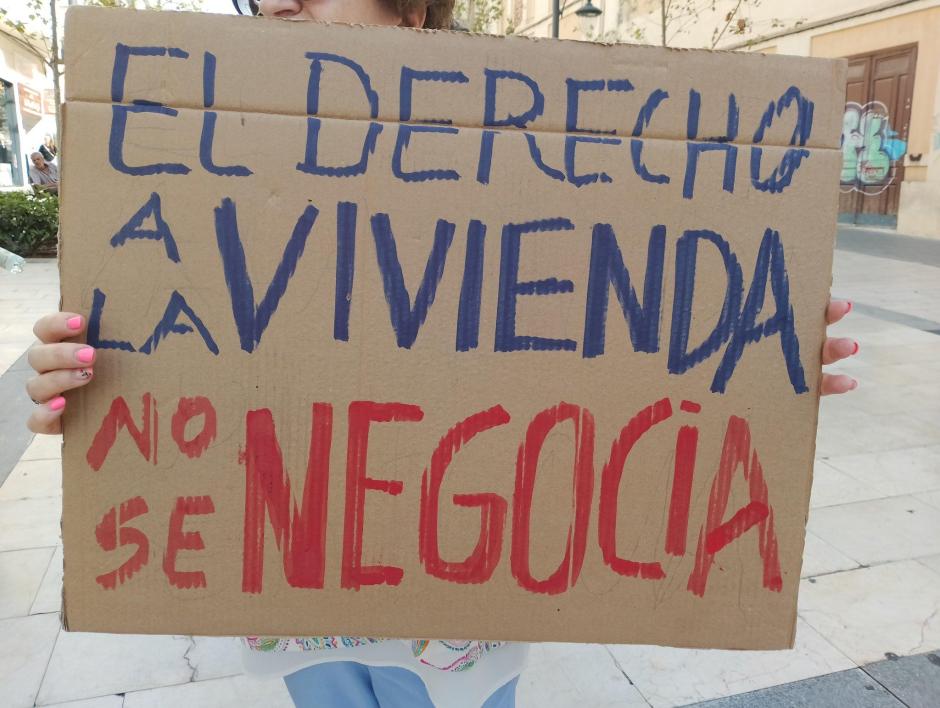 EL DERECHO
A LA VIVIENDA
NO SE NEGOCIA